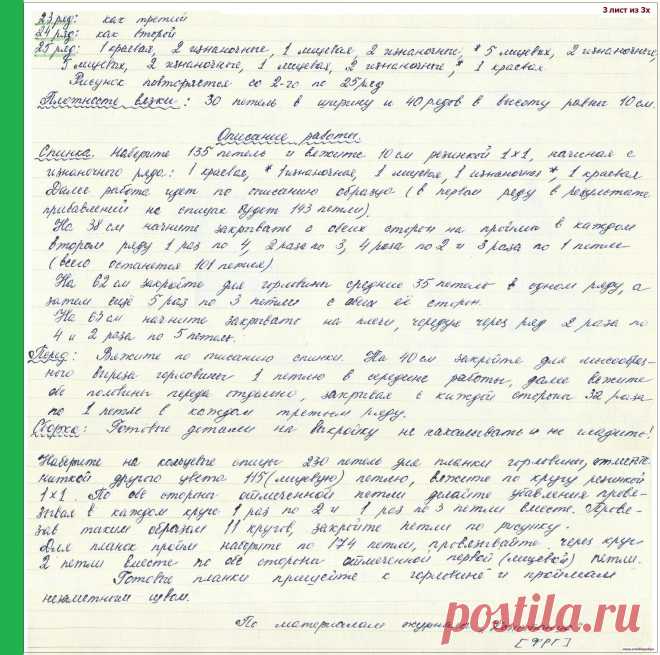 3 лист из 3х
23 ряд: как третий
24 ряд: как второй
25 ряд: 1 краевая, 2 изнаночные, 1 лицевая, 2 изнаночные, * 5 лицевых, 2 изнаночные,
5 лицевых, 2 изнаночные, 1 лицевая, 2 изнаночные,* 1 краевая
Рисунок повторяется со 2-го по 25 ряд
Плотность вязки: 30 петель в ширину и 40 рядов в высоту равны 10 см.
Описание работы.
Спинка. Наберите 135 петель и вяжите 10 см резинкой 1×1, начиная с
изнаночного ряда: 1 краевая, * 1 изнаночная, 1 лицевая, 1 изнаночная *, 1 краевая
Далее работа идет по описанию образца (в первом ряду в результате
прибавлений на спицах будет 143 петли).
На 38 см начните закрывать с обеих сторон на проймы в каждом
втором ряду 1 раз по 4, 2 раза по 3, 4 раза по 2 и 3 раза по 1 петле
(всего останется 101 петля)
На 62 см закройте для горловины средние 35 петель в одном ряду, а
затем ещё 5 раз по 3 петли с обеих её сторон.
На 63 см начните закрывать на плечи, чередуя через ряд 2 раза по
4 и 2 раза по 5 петель.
Перед: Вяжите по описанию спинки. На 40 см закройте для мысообраз-
ного выреза горловины 1 петлю в середине работы, далее вяжите
обе половины переда отдельно, закрывая с каждой стороны 32 раза
по 1 петле в каждом третьем ряду.
Сборка: Готовые детали на выкройку не накалывать и не гладить!
Наберите на кольцевые спицы 230 петель для планки горловины, отметьте
ниткой другого цвета 115 (лицевую) петлю, вяжите по кругу резинкой
1×1. По обе стороны отмеченной петли делайте убавления провя-
зывая в каждом круге 1 раз по 2 и 1 раз по 3 петли вместе. Провя-
зав таким образом 11 кругов, закройте петли по рисунку.
Для планок пройм наберите по 174 петли, провязывайте через круг
2 петли вместе по обе стороны отмеченной первой (лицевой) петли.
Готовые планки пришейте к горловине и проймам
незаметным швом.
По материалам журнала
[ФРГ]
postila.ru